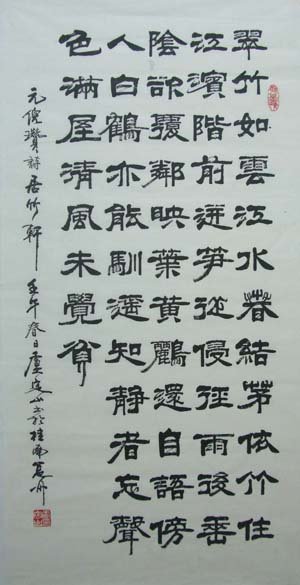 翠竹如雲江水春結茅依竹住
江濱階前迸笋從侵徑雨後垂
陰欲覆鄰映葉黃鸝還自語傍
人白鶴亦能馴遥知靜者忘聲
色滿屋清風未覺貧
元倪瓚詩居竹軒 壬午春日盧山書於桂南